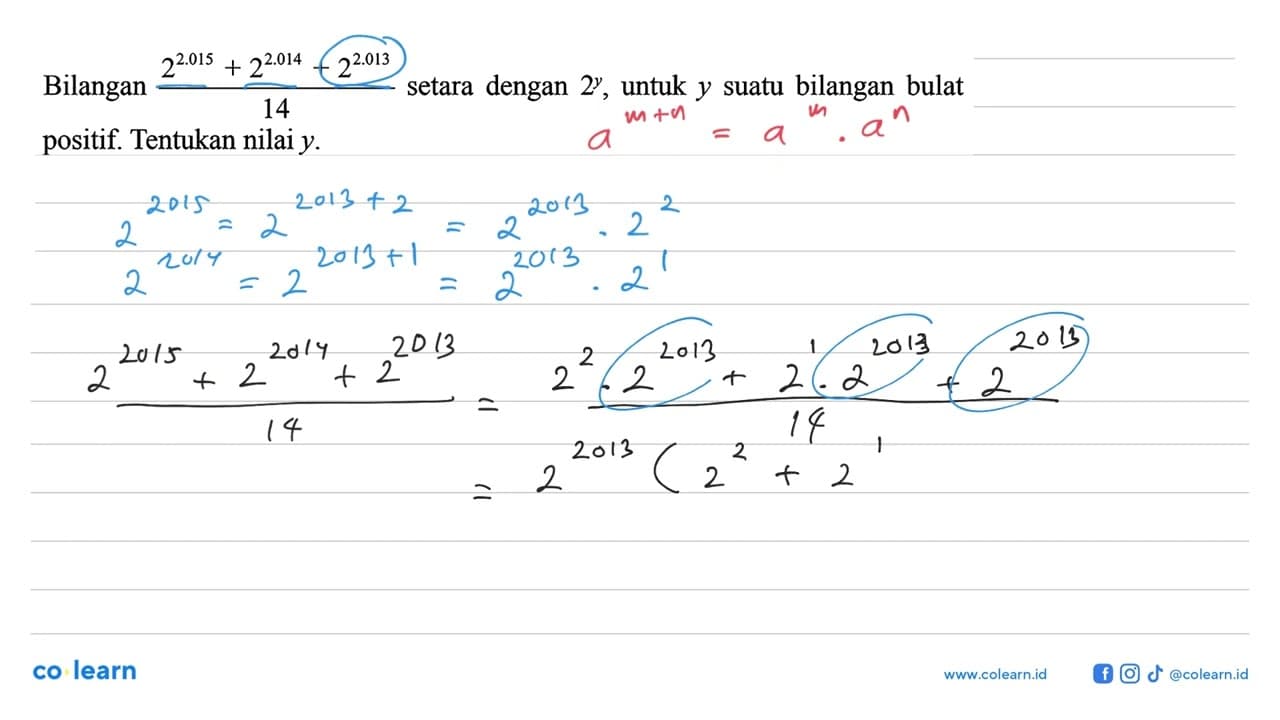 Bilangan (2^2.015 + 2^2.014 + 2^2.013)/14 setara dengan 2^y, untuk y suatu bilangan bulat
positif. Tentukan nilai y.
a^(m+n) = a^m . a^n
2^2015 = 2^(2013+2) = 2^2013 . 2^2
2^2014 = 2^(2013+1) = 2^2013 . 2^1
(2^2015 + 2^2014 + 2^2013)/14 = (2^2 . 2^2013 + 2^1 . 2^2013 + 2^2013)/14
= 2^2013 (2^2 + 2^1
co learn
www.colearn.id @colearn.id